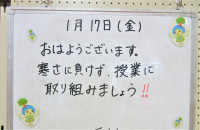 1月17日(金)
おはようございます。
寒さに負けず、授業に
取り組みましょう!!